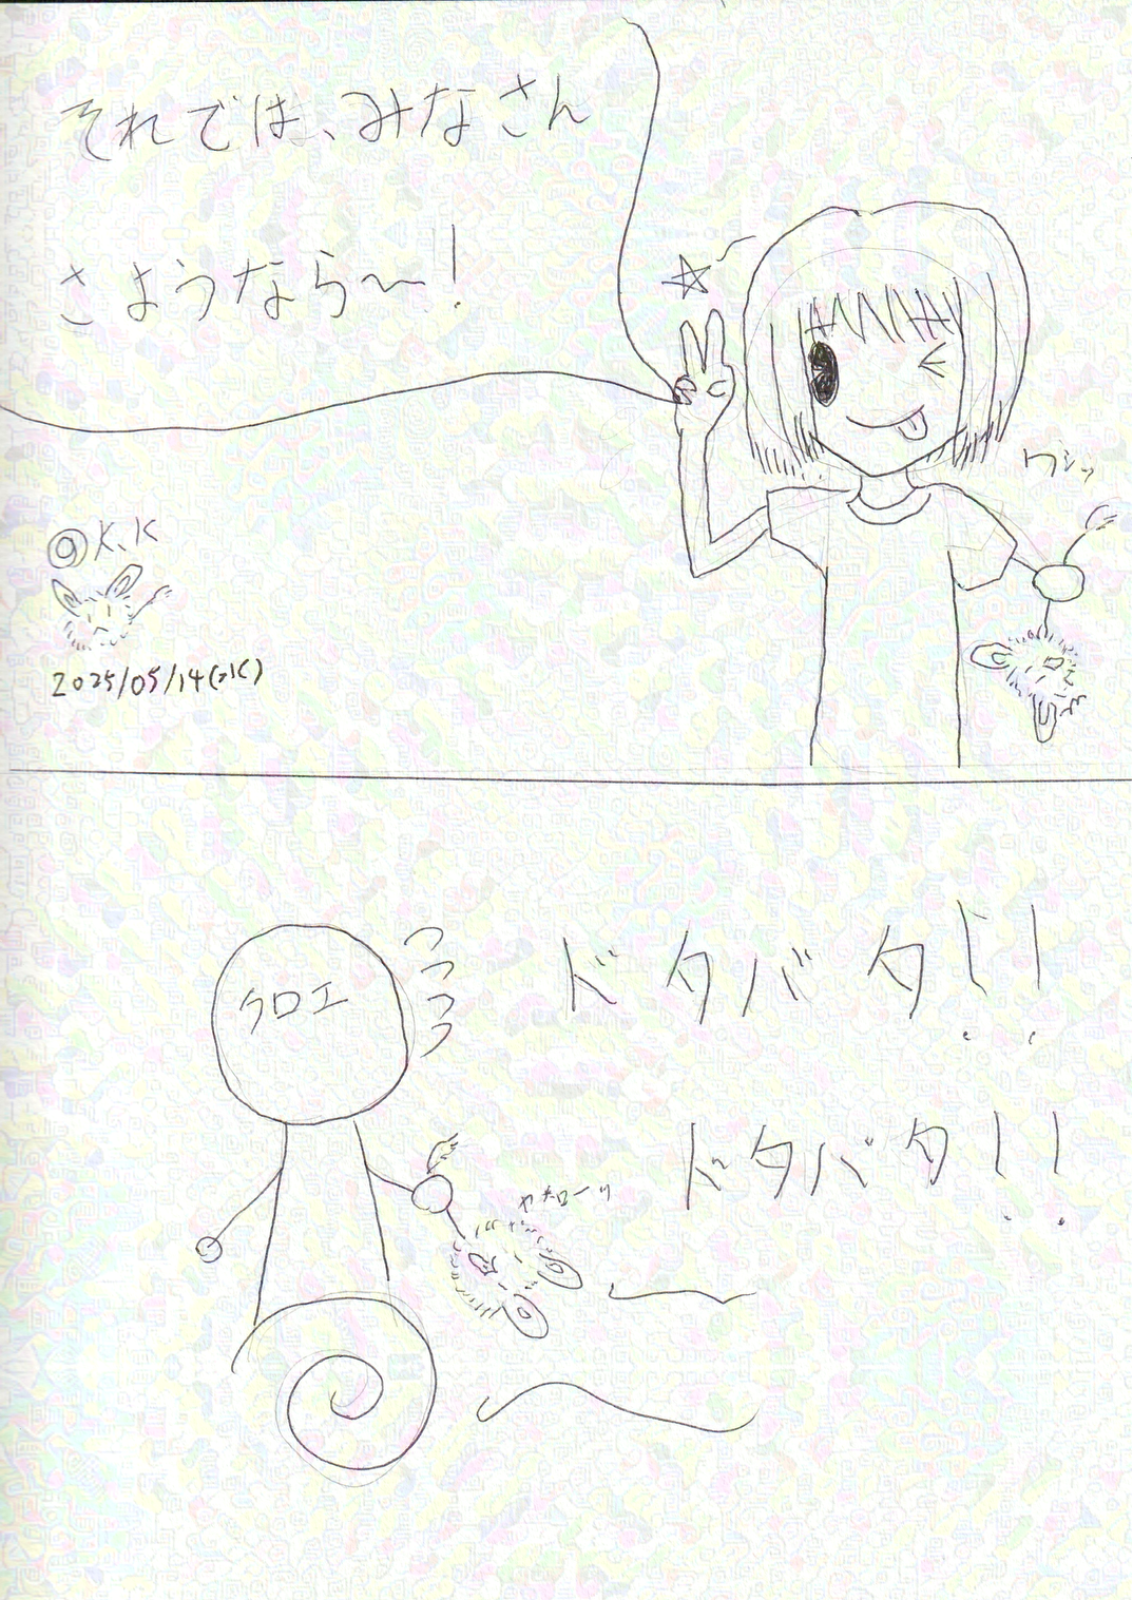 それでは、みなさん
さようなら〜!
ワシッ
@K.K
2025/05/14(水)
クロエ
ドタバタ!!
ドタバタ!!
ヤメローッ